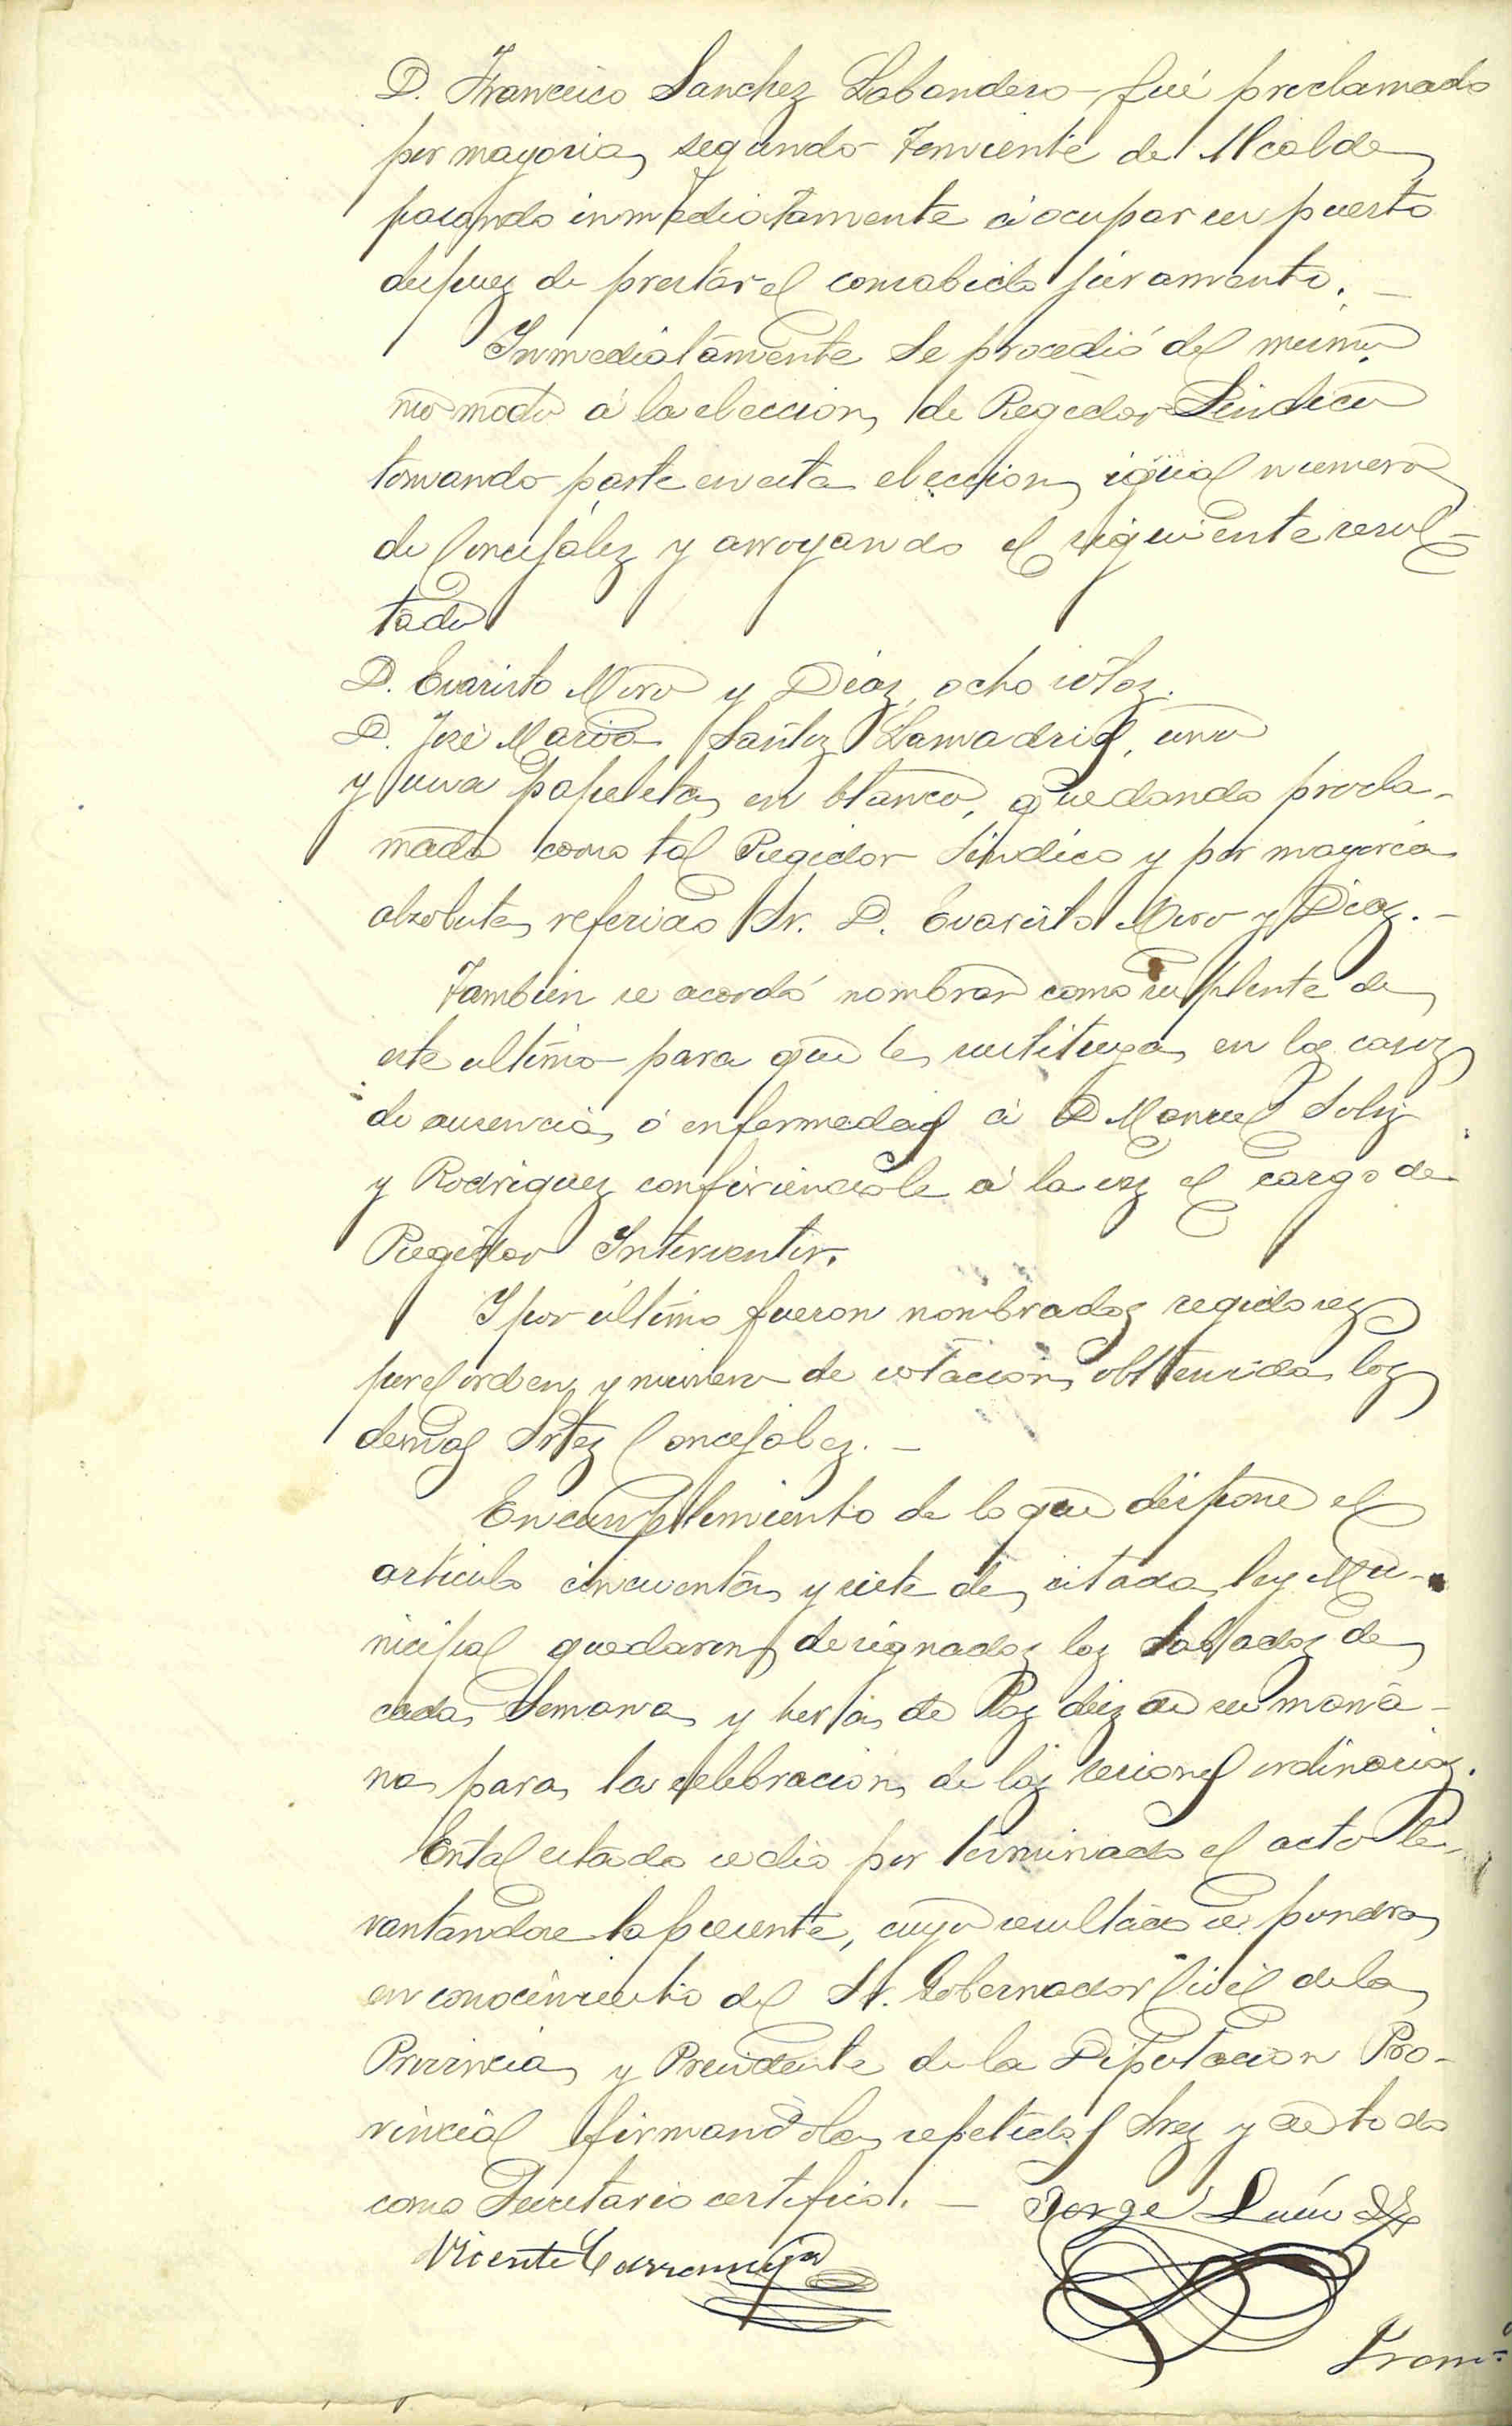 D. Francisco Sanchez Labandero fué proclamado
por mayoria segundo Teniente de Alcalde
pasando inmediatamente á ocupar su puesto
despuez de prestár el consabido juramento. —
Inmediatamente se procedió del mismo
mo modo á la eleccion de Regidor Sindico
tomando parte en esta eleccion igual numero
de Concejález y arroyando el siguiente resul-
tado
D. Evaristo Miro y Diaz, ocho votoz.
D. José Maria Santoz Lamadrid, uno
y una papeleta en blanco, quedando procla-
mado como tal Regidor Sindico y por mayoria
absoluta referido Sr. D. Evaristo Miro y Diaz. —
Tambien se acordó nombrar como suplente de
este ultimo para que le sustituya en loz casoz
de ausencia ó enfermedad á D Manuel Soliz
y Rodriguez confiriendole á la vez el cargo de
Regidor Interventor.
Y por último fueron nombradoz regidorez
por el orden y numero de votacion obtenida loz
demas Srez Concejalez. —
En cumplimiento de lo que dispone el
articulo cincuenta y siete de citada ley Mu-
nicipal quedaron designadoz loz Sabadoz de
cada Semana y hora de laz diez de su maña-
na para la celebracion de laz sesiones ordinariaz.
En tal estado se dió por terminado el acto le-
vantandose la presente, cuyo resultado se pondra
en conocimiento del Sr. Gobernador Civil de la
Provincia y Presidente de la Diputacion Pro-
vincial firmandola repetidos Srez y de todo
como Secretario certifico. — Jorge
Vicente
Franco